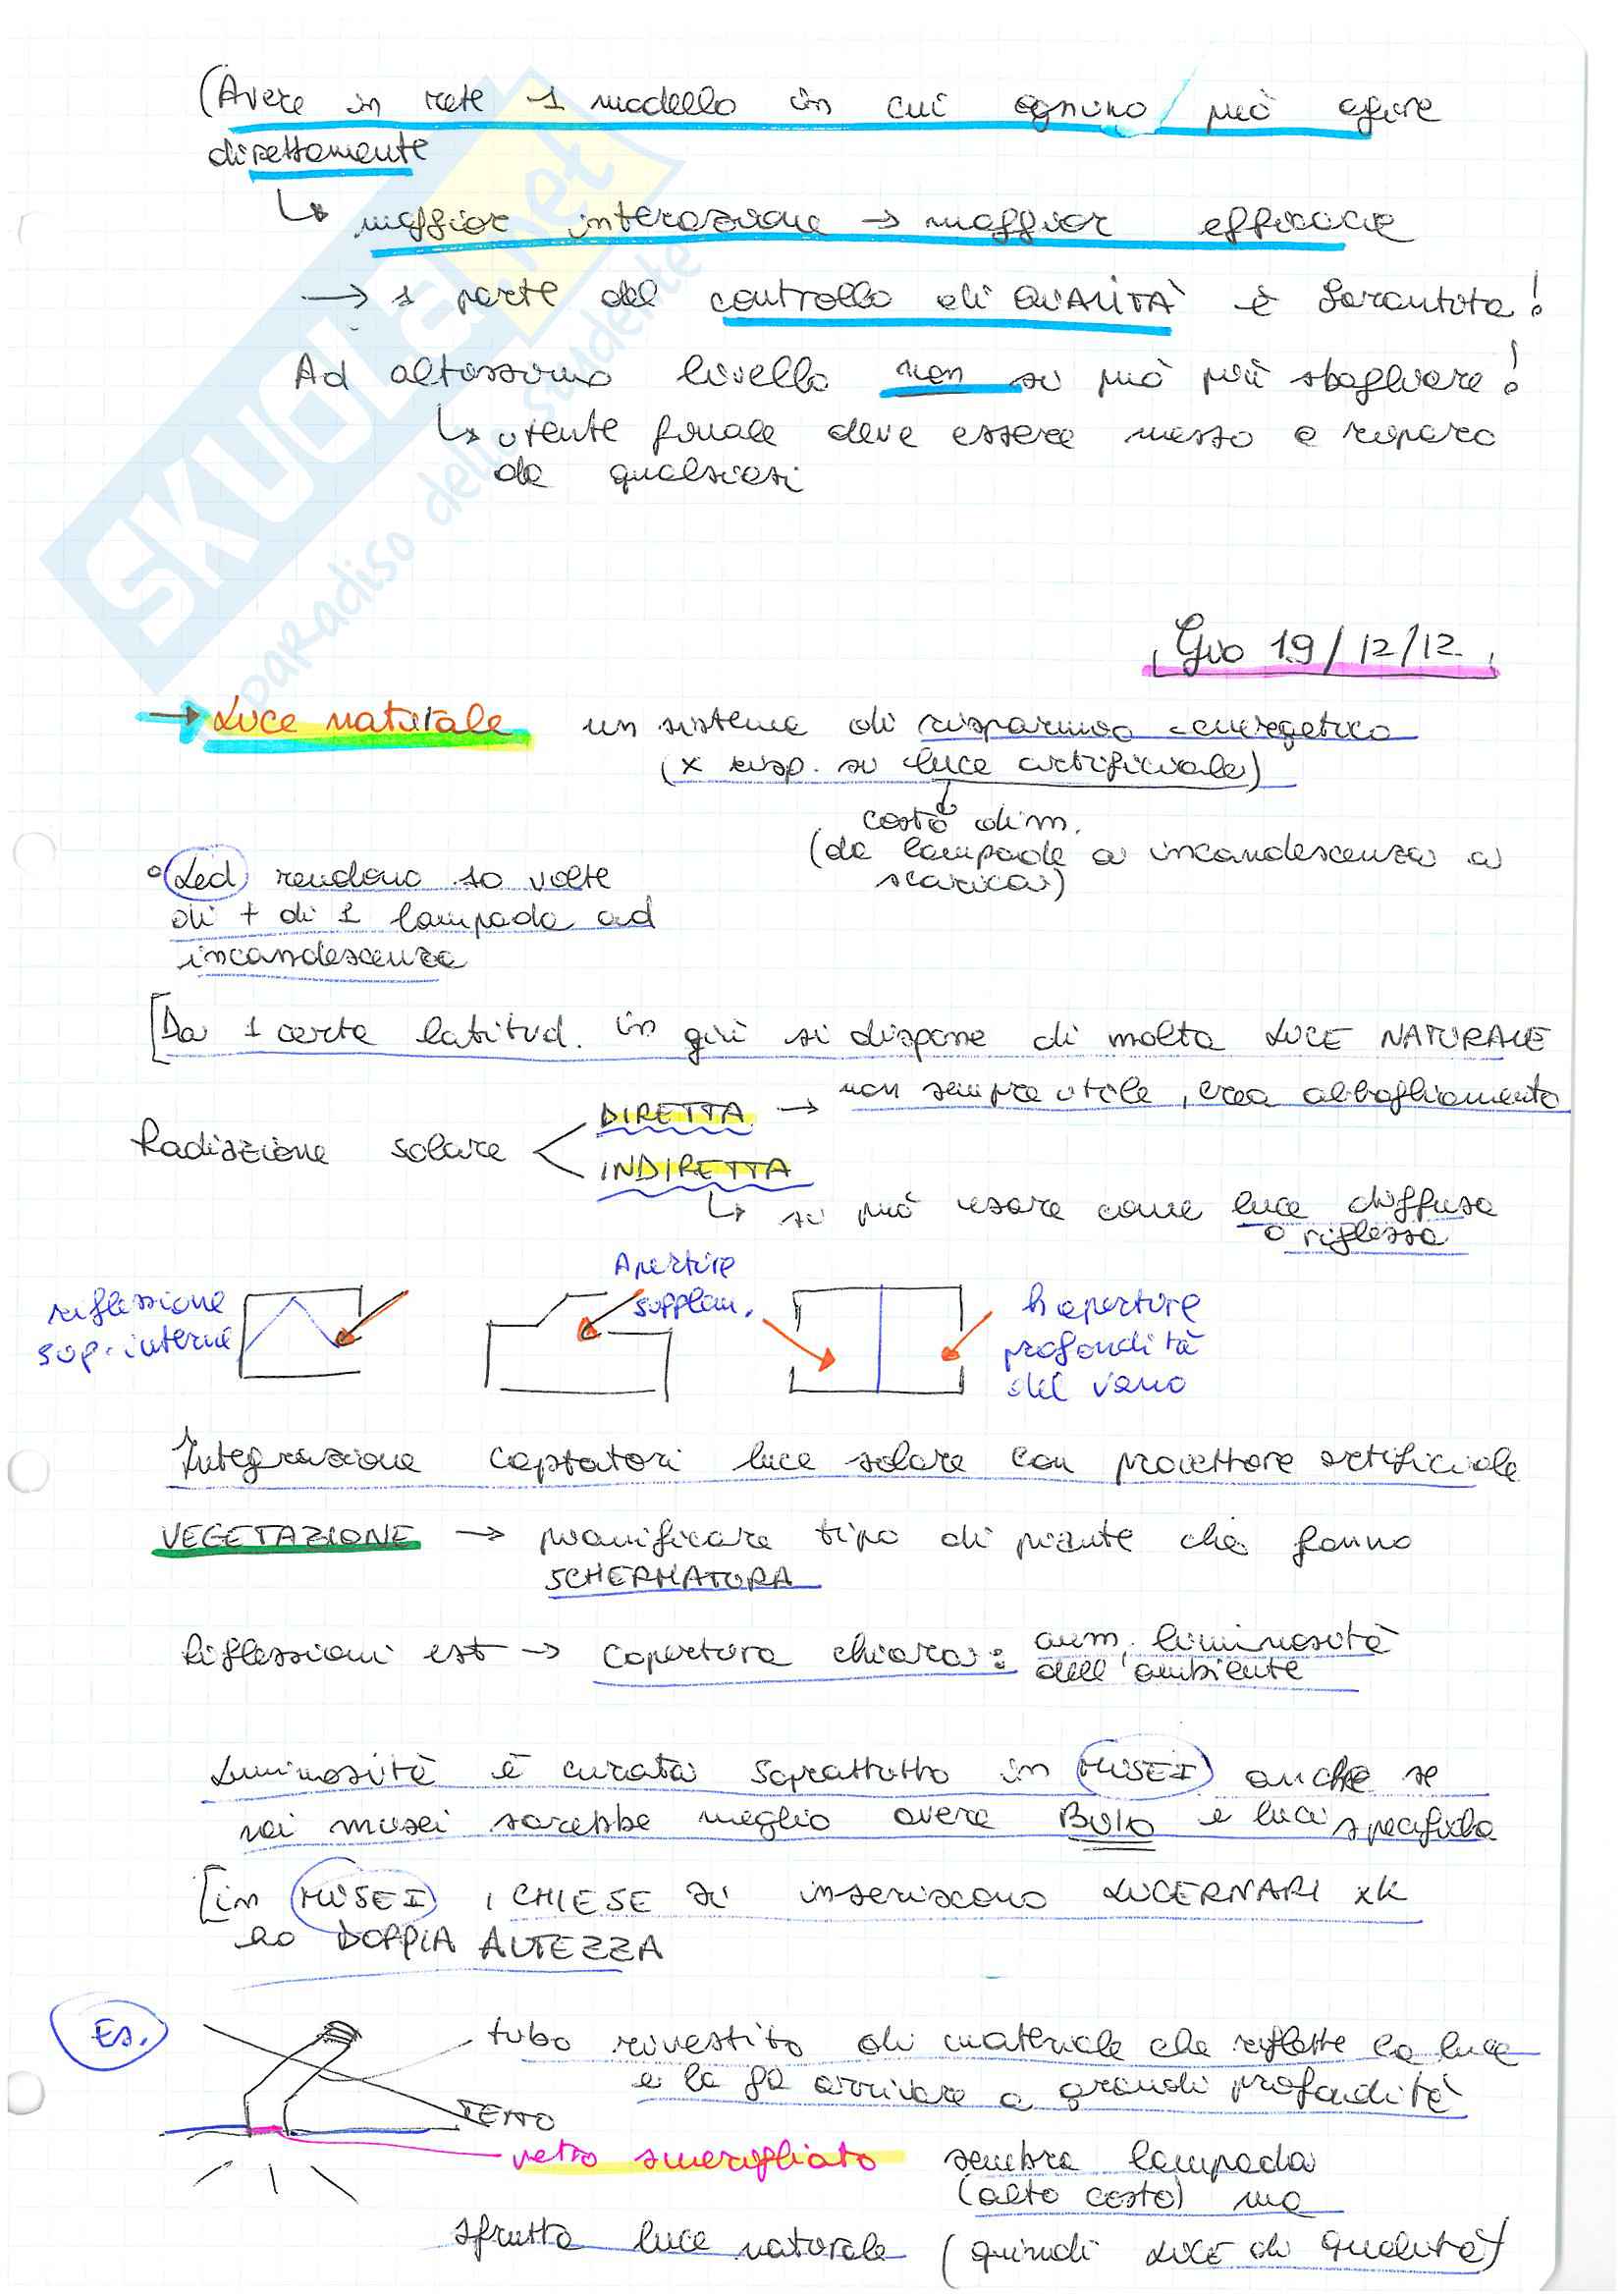 (Avere in rete 1 modello in cui ognuno può agire
direttamente
↳ maggior interazione → maggior efficacia
→ 1 parte del controllo di QUALITÀ è garantita!
Ad altissimo livello non si può più sbagliare!
↳ utente finale deve essere messo a riparo
da qualsiasi
SKUOLA.net
paradiso dello studente
Gio 19/12/12
→ Luce naturale un sistema di risparmio energetico
(x risp. su luce artificiale)
costo dim.
(da lampade a incandescenza a
scarica)
° Led rendono 10 volte
di + di 1 lampada ad
incandescenza
[Da 1 certa latitud. in giù si dispone di molta LUCE NATURALE
Radiazione solare < DIRETTA → non sempre utile, crea abbagliamento
INDIRETTA
↳ si può usare come luce diffusa
o riflessa
riflessione
sup. interne
Aperture
supplem.
h aperture
profondità
del vano
Integrazione captatori luce solare con proiettore artificiale
VEGETAZIONE → pianificare tipo di piante che fanno
SCHERMATURA
Riflessioni est → copertura chiara: aum. luminosità
dell'ambiente
Luminosità è curata soprattutto in MUSEI anche se
nei musei sarebbe meglio avere BUIO e luci specifiche
[in MUSEI, CHIESE si inseriscono LUCERNARI xk
ho DOPPIA ALTEZZA
Es.
tubo rivestito di materiale che riflette la luce
e la fa arrivare a grandi profondità
TETTO
vetro smerigliato sembra lampada
(alto costo) ma
sfrutta luce naturale (quindi LUCE di qualità)